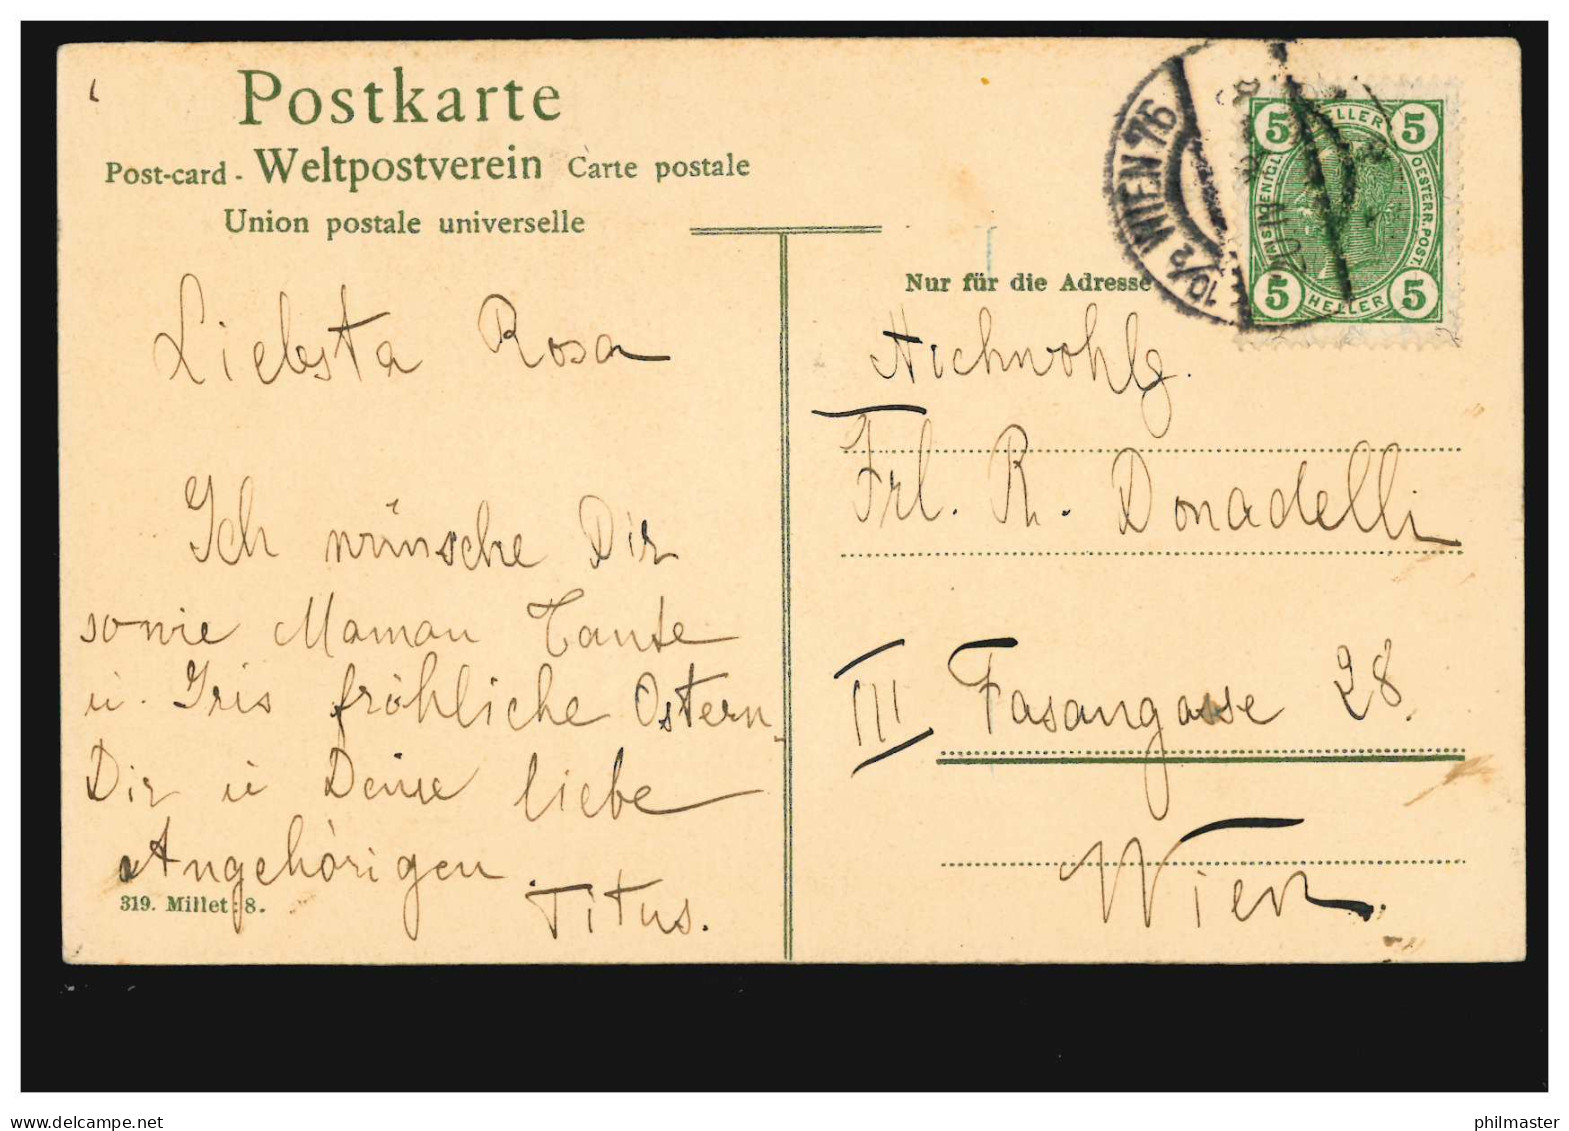 Postkarte
Post-card - Weltpostverein Carte postale
Union postale universelle
Nur für die Adresse
WIEN 76
5 HELLER 5
OESTERR. POST.
5 HELLER 5
Liebsta Rosa
Ich wünsche Dir
sowie Maman Tante
u. Iris fröhliche Ostern
Dir u Deine liebe
Angehörigen.
Titus.
319. Millet: 8.
Frl. R. Donadelli
III Fasangasse 28.
Wien.
www.stampsx.com
philmaster